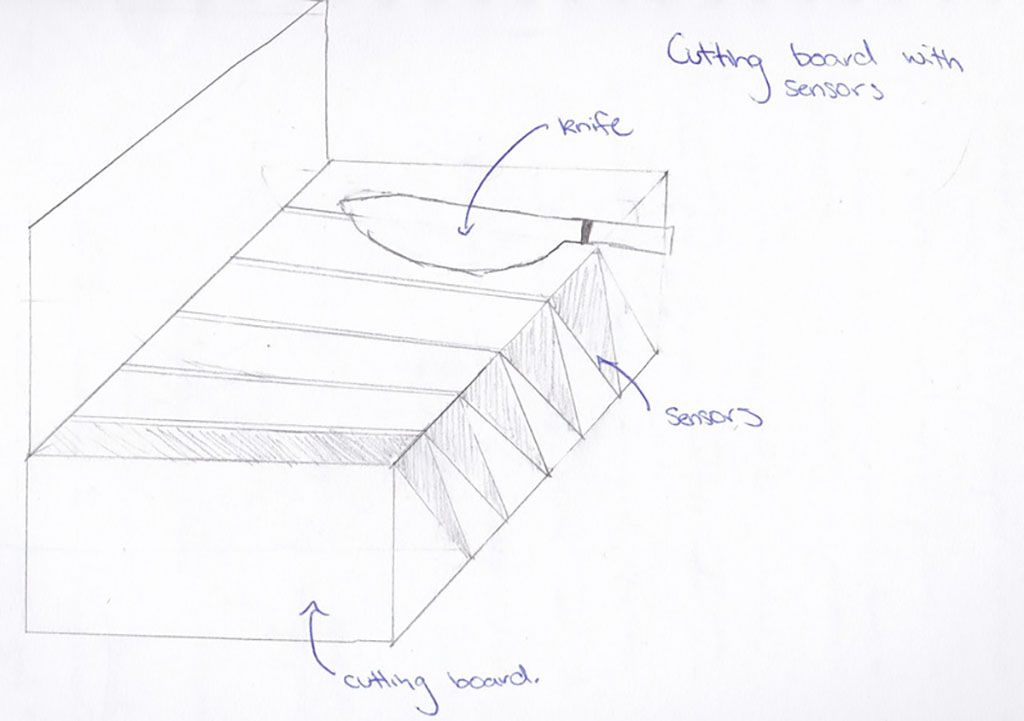 Cutting board with
sensors
knife
sensors
cutting board.